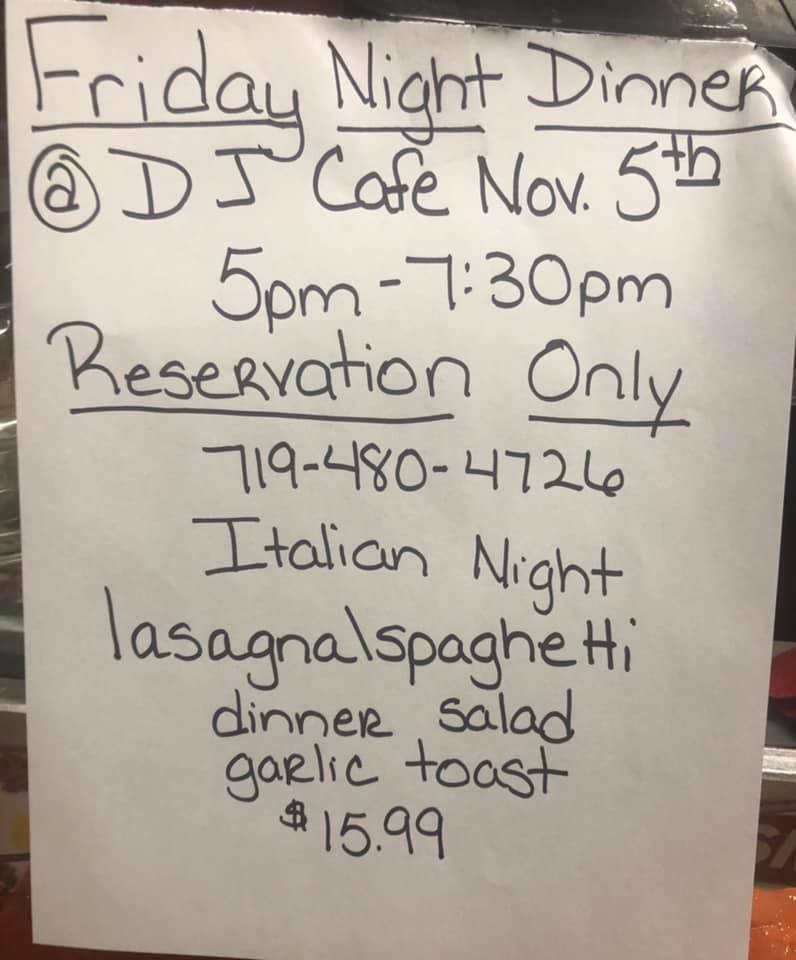 Friday Night Dinner
@ DJ Cafe Nov. 5th
5pm - 7:30pm
Reservation Only
719-480-4726
Italian Night
lasagna\spaghetti
dinner salad
garlic toast
$15.99